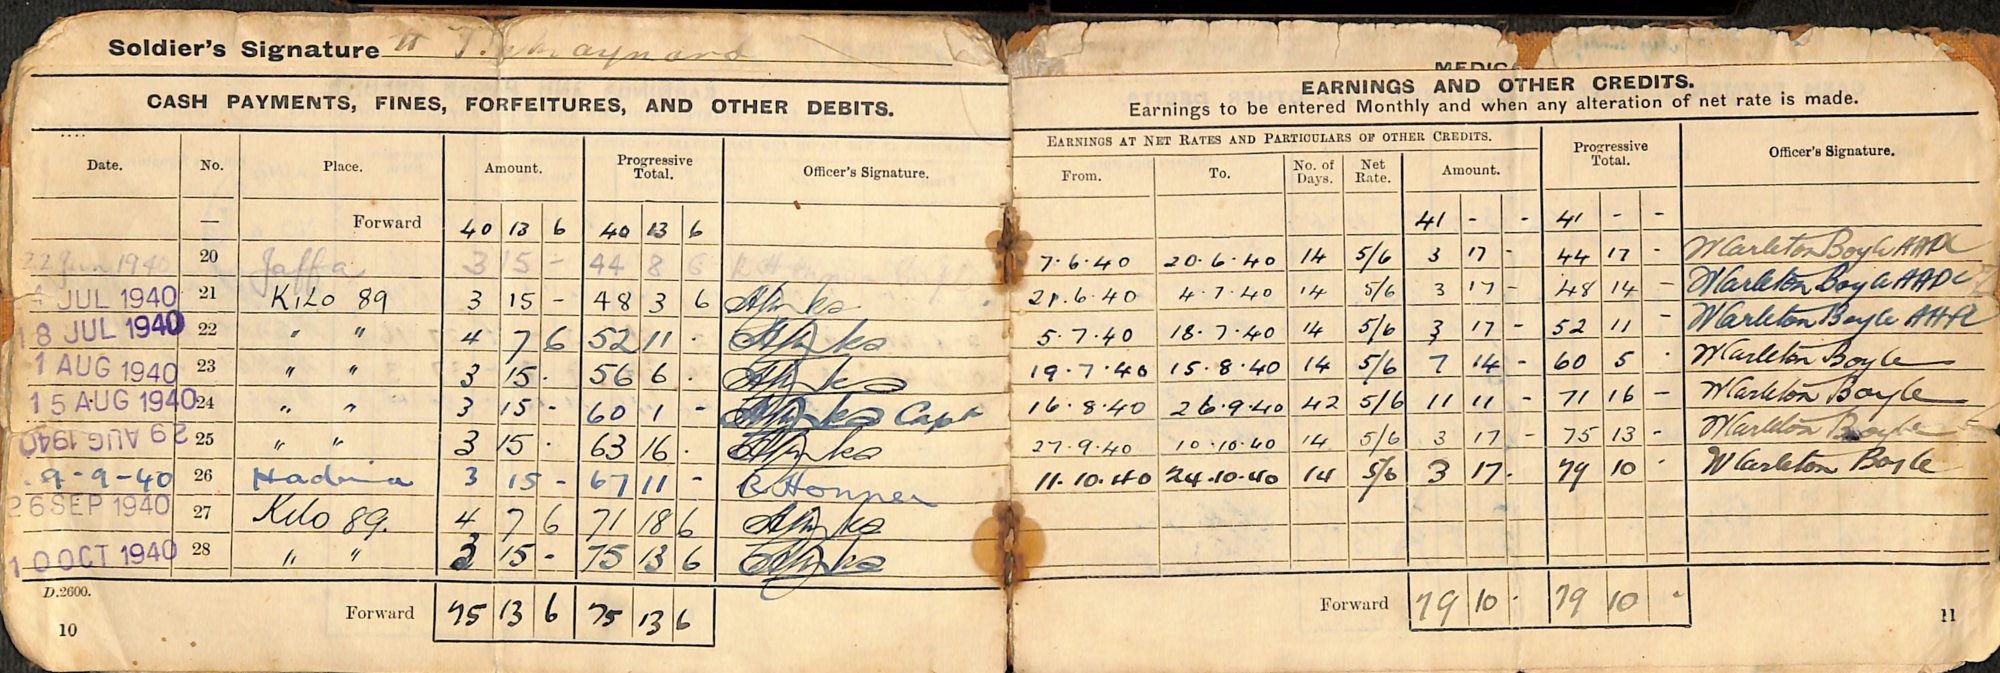 Soldier's Signature
CASH PAYMENTS, FINES, FORFEITURES, AND OTHER DEBITS.
Date. No. Place. Amount. Progressive Total. Officer's Signature.
— Forward 40 13 6 40 13 6
22 Jun 1940 20 Jaffa 3 15 - 44 8 6
4 JUL 1940 21 Kilo 89 3 15 - 48 3 6
18 JUL 1940 22 " " 4 7 6 52 11 .
1 AUG 1940 23 " " 3 15 . 56 6 .
15 AUG 1940 24 " " 3 15 - 60 1 - Capt
29 AUG 1940 25 " " 3 15 . 63 16 .
9-9-40 26 3 15 - 67 11 - R Honner
26 SEP 1940 27 Kilo 89. 4 7 6 71 18 6
10 OCT 1940 28 " " 3 15 - 75 13 6
D.2600.
Forward 75 13 6 75 13 6
10
EARNINGS AND OTHER CREDITS.
Earnings to be entered Monthly and when any alteration of net rate is made.
EARNINGS AT NET RATES AND PARTICULARS OF OTHER CREDITS. Progressive Total. Officer's Signature.
From. To. No. of Days. Net Rate. Amount.
41 - - 41 - -
7.6.40 20.6.40 14 5/6 3 17 - 44 17 - W Carleton Boyle
21.6.40 4.7.40 14 5/6 3 17 - 48 14 - W Carleton Boyle
5.7.40 18.7.40 14 5/6 3 17 - 52 11 - W Carleton Boyle
19.7.40 15.8.40 14 5/6 7 14 - 60 5 . W Carleton Boyle
16.8.40 26.9.40 42 5/6 11 11 - 71 16 - W Carleton Boyle
27.9.40 10.10.40 14 5/6 3 17 - 75 13 - W Carleton Boyle
11.10.40 24.10.40 14 5/6 3 17 . 79 10 . W Carleton Boyle
Forward 79 10 . 79 10 .
11